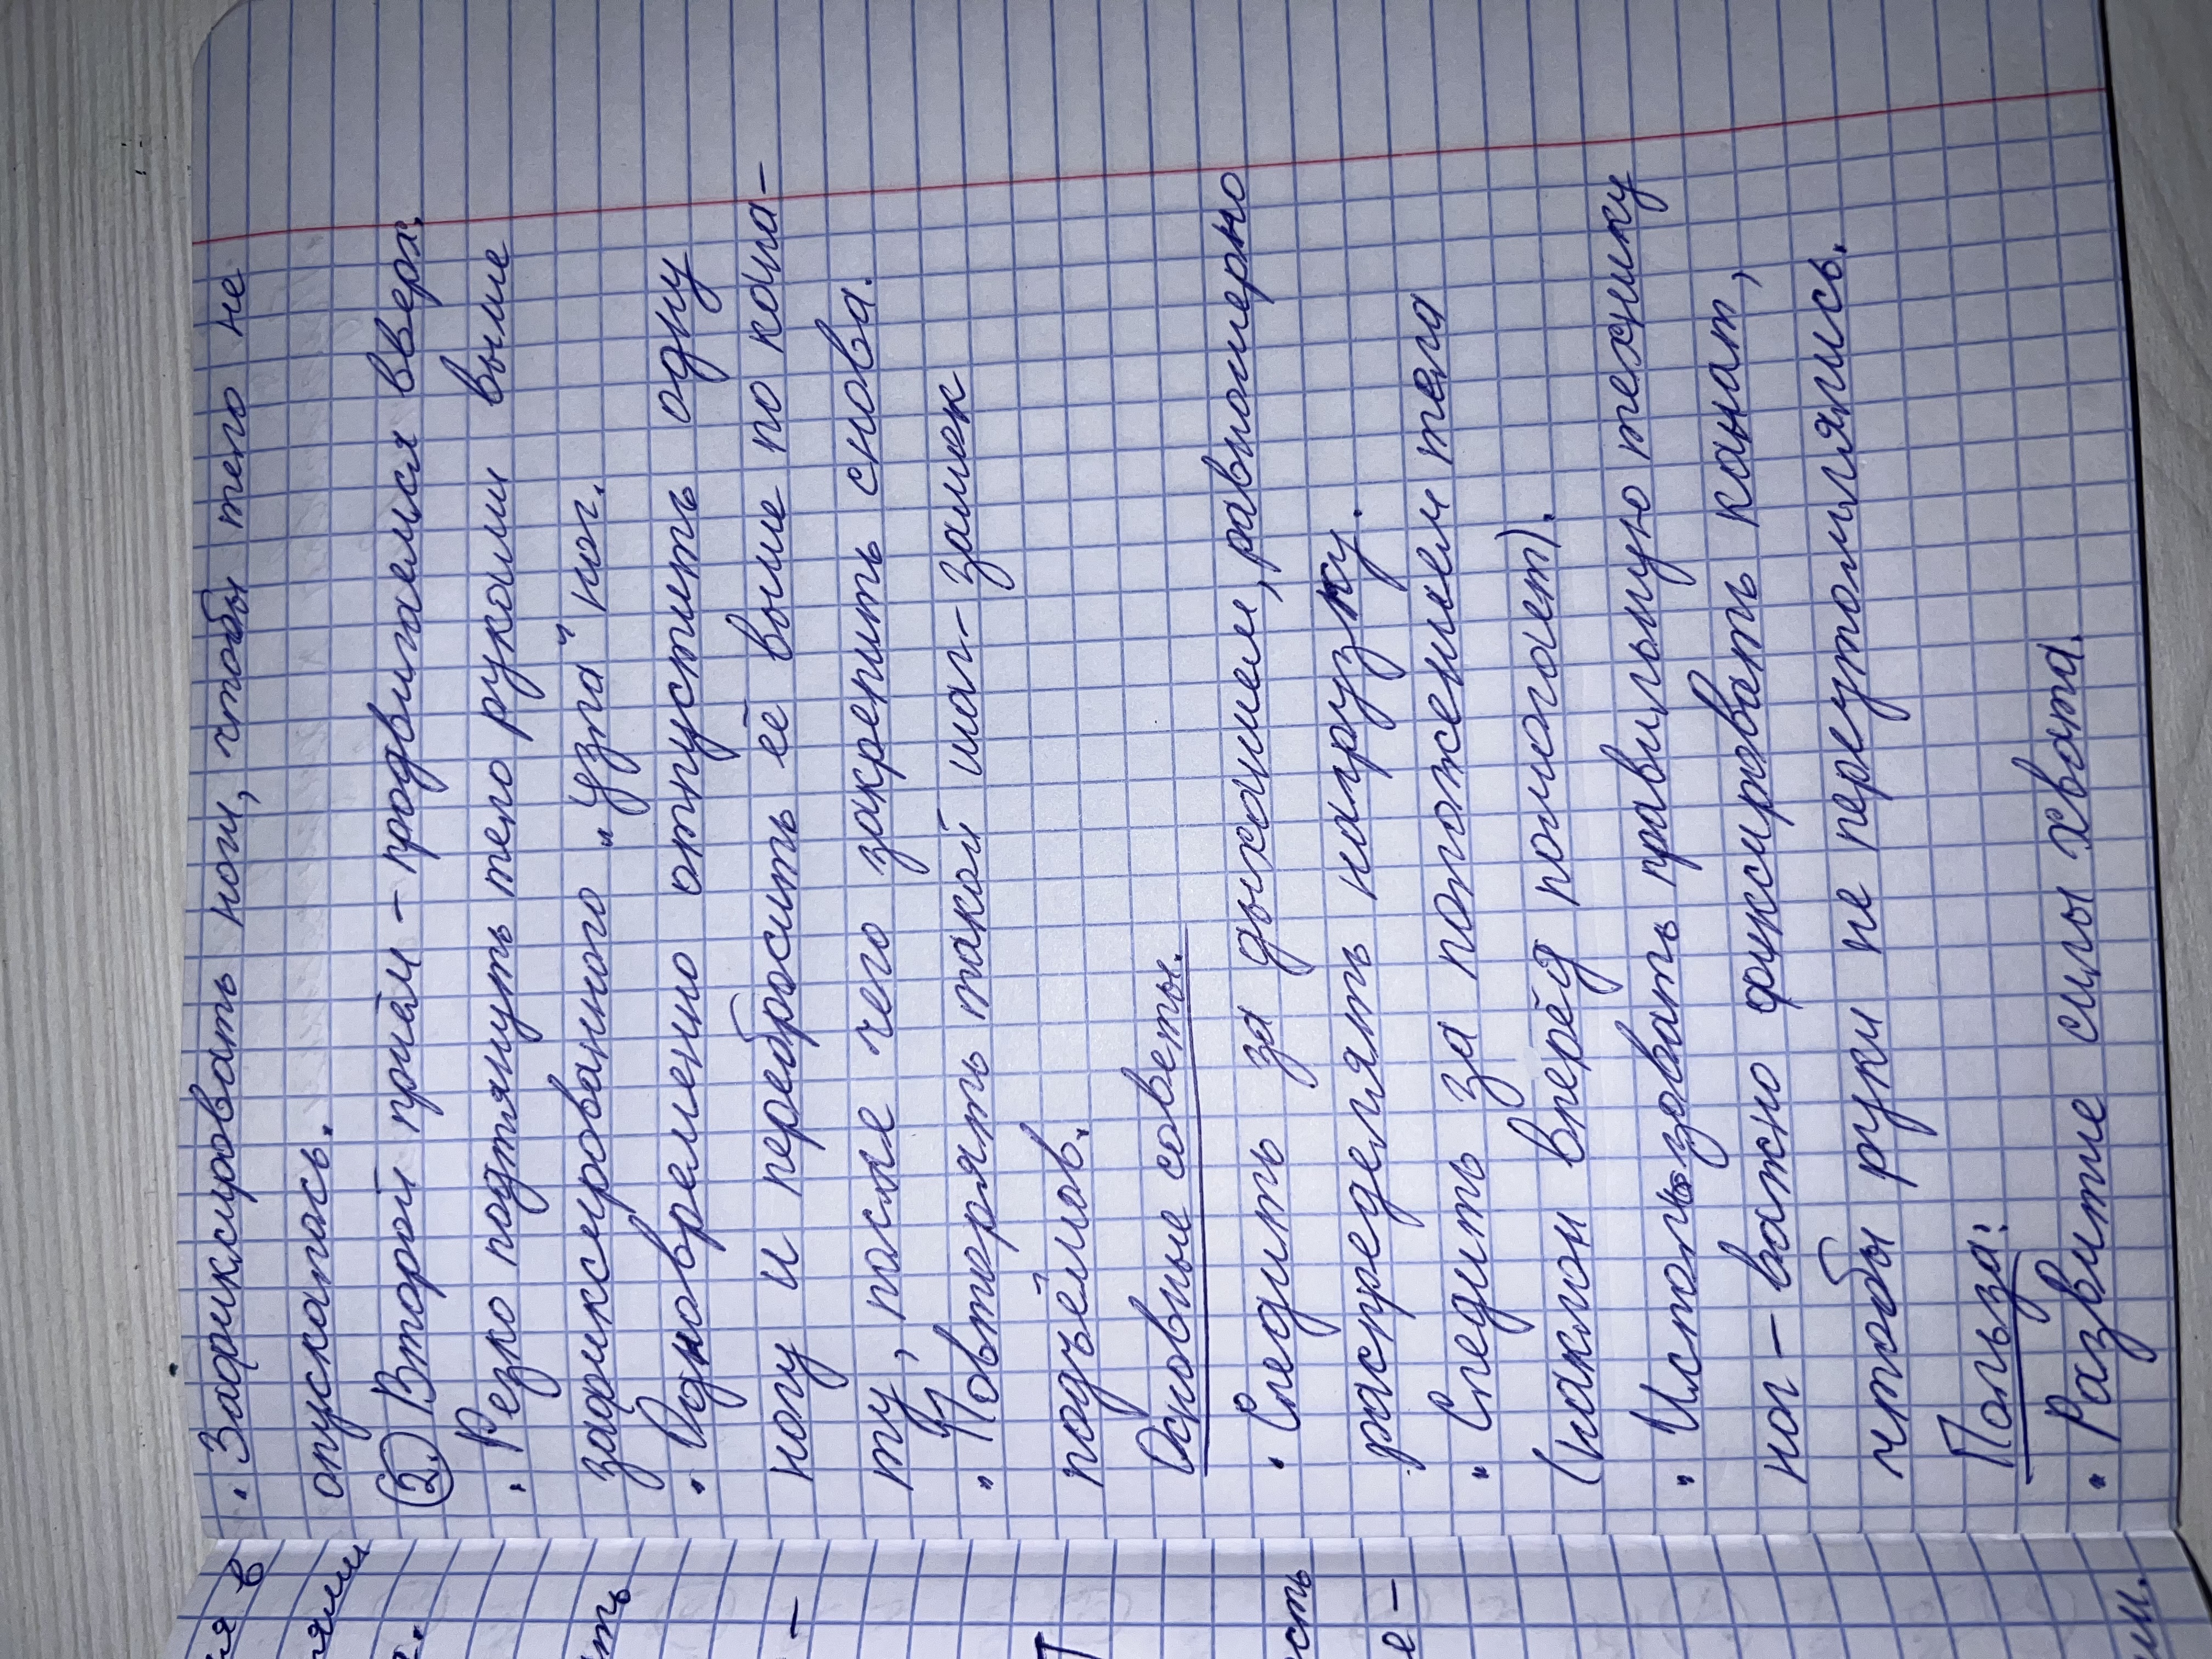 · Зафиксировать ноги, чтобы тело не
опускалось.
2. Второй приём – продвигаемся вверх.
· Резко подтянуть тело руками выше
зафиксированного „узла“ ног.
· Одновременно отпустить одну
ногу и перебросить её выше по кана-
ту, после чего закрепить снова.
· Повторять такой шаг-замок
подъёмов.
Основные советы.
· Следить за дыханием, равномерно
распределять нагрузку.
· Следить за положением тела
(наклон вперёд помогает).
· Использовать правильную технику
ног – важно фиксировать канат,
чтобы руки не переутомлялись.
Польза:
· Развитие силы хвата.